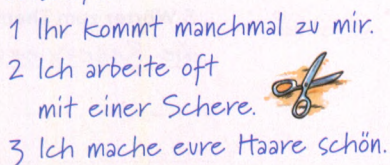 1 Ihr kommt manchmal zu mir.
2 Ich arbeite oft
mit einer Schere.
3 Ich mache eure Haare schön.